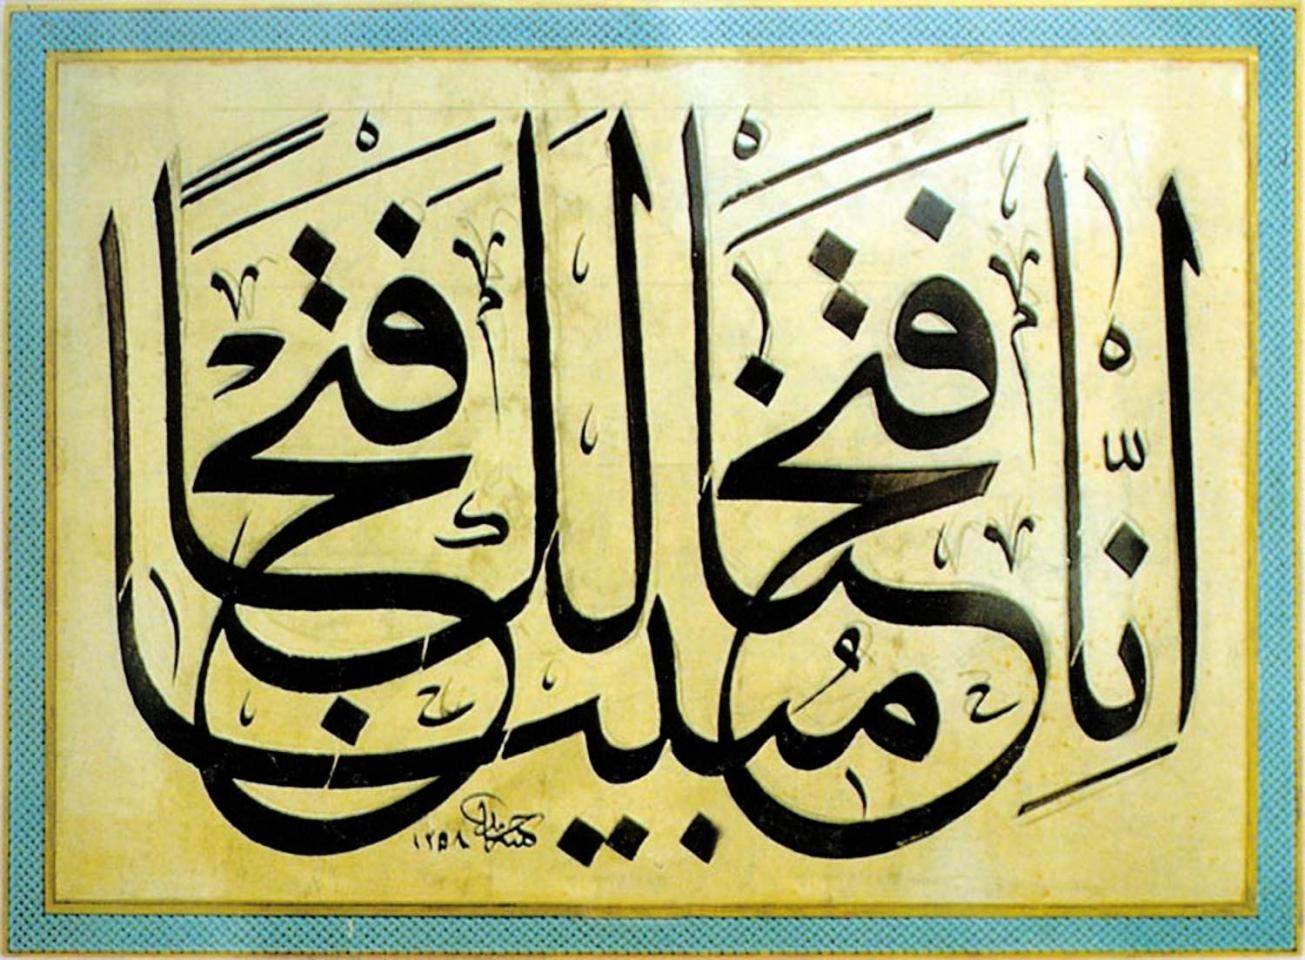 إِنَّا فَتَحْنَا لَكَ فَتْحًا مُبِينًا
١٢٥٨